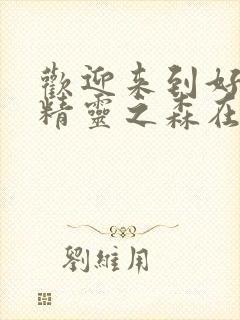 歡迎来到好
精靈之森在
劉維用